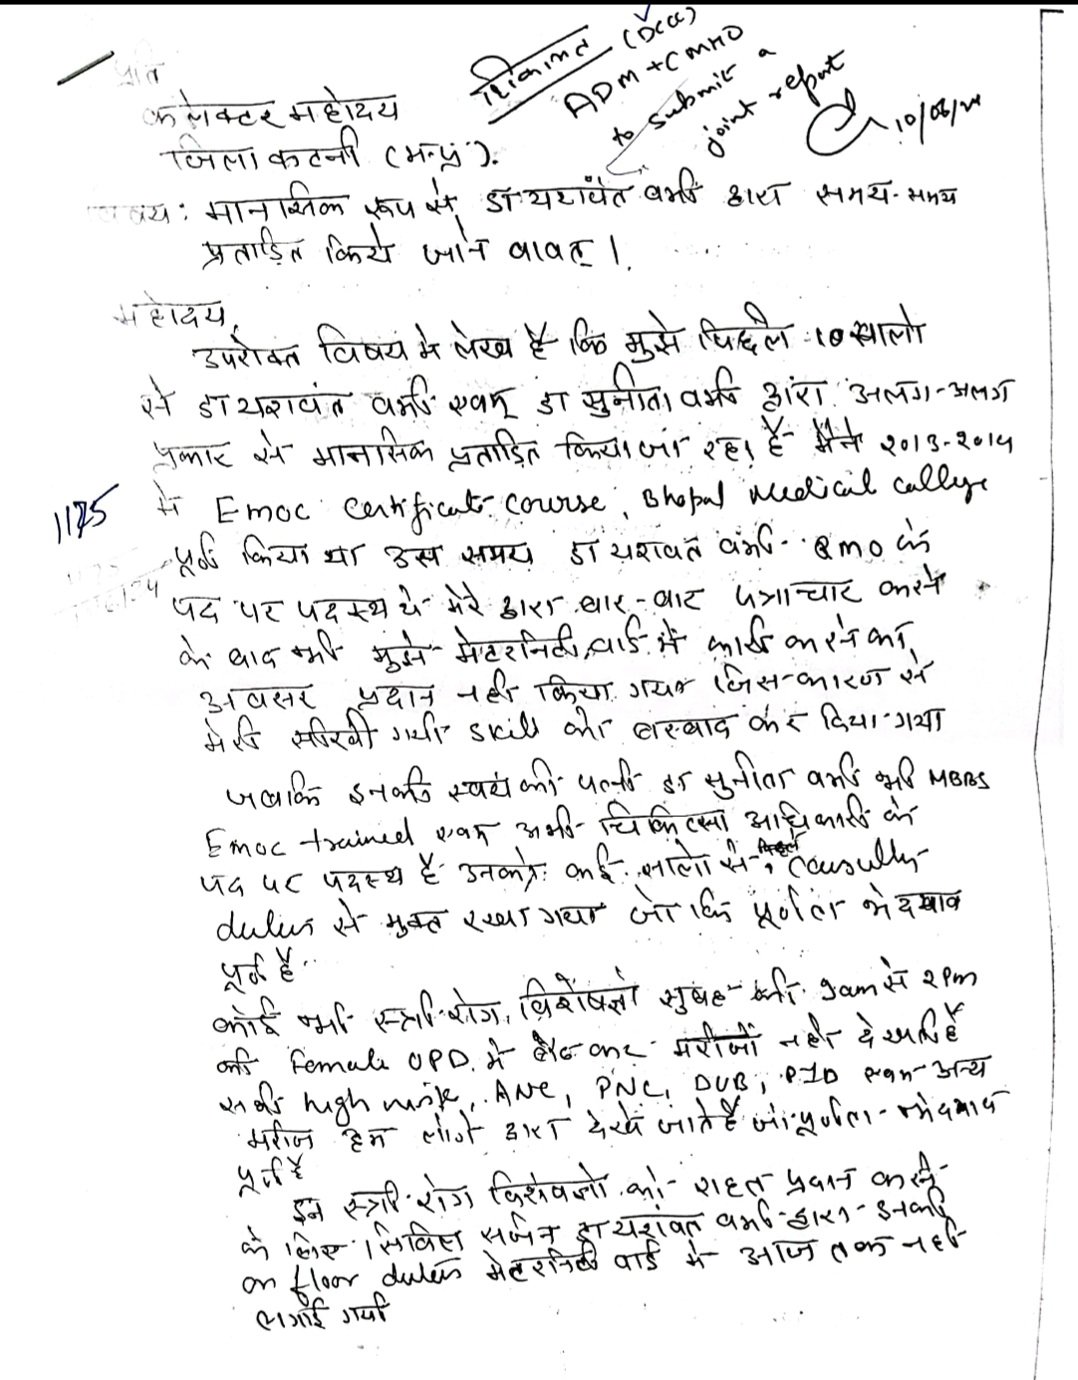 प्रति
शिकायत (DCC)
ADM + CMHO
to submit a
joint report
10/06/24
कलेक्टर महोदय
जिला कटनी (म.प्र.).
विषय: मानसिक रूप से, डा यशवंत वर्मा द्वारा समय-समय
प्रताड़ित किये जाने वावत् ।
महोदय,
उपरोक्त विषय मे लेख है कि मुझे पिछले 10 सालो
से डा यशवंत वर्मा एवम् डा सुनीता वर्मा द्वारा अलग-अलग
प्रकार से मानसिक प्रताड़ित किया जा रहा है मैने 2013-2014
1125
मे Emoc Certificate course, Bhopal Medical College
पूर्ण किया था उस समय डा यशवंत वर्मा BMO के
पद पर पदस्थ थे मेरे द्वारा बार-बार पत्राचार करने
के बाद भी मुझे मेटरनिटी वार्ड मे कार्य करने का
अवसर प्रदान नही किया गया जिस कारण से
मेरी सीखी गयी skill को बरबाद कर दिया गया
जबकि इनकी स्वयं की पत्नी डा सुनीता वर्मा भी MBBS
Emoc trained एवम् अभी चिकित्सा अधिकारी के
पद पर पदस्थ है उनको कई सालो से, Causulty
duties से मुक्त रखा गया जो कि पूर्णता भेदभाव
पूर्ण है
कोई भी स्त्री रोग विशेषज्ञो सुबह की 9am से 2pm
की Female OPD में बैठ कर मरीजों नही देखती है
सभी high risk, ANC, PNC, DUB, PID एवम अन्य
मरीज हम लोगो द्वारा देखे जाते है जो पूर्णता भेदभाव
पूर्ण है
इन स्त्री रोग विशेषज्ञो को राहत प्रदान करने
के लिए सिविल सर्जन डा यशवंत वर्मा द्वारा उनकी
on floor duties मेटरनिटी वार्ड मे आज तक नही
लगाई गयी